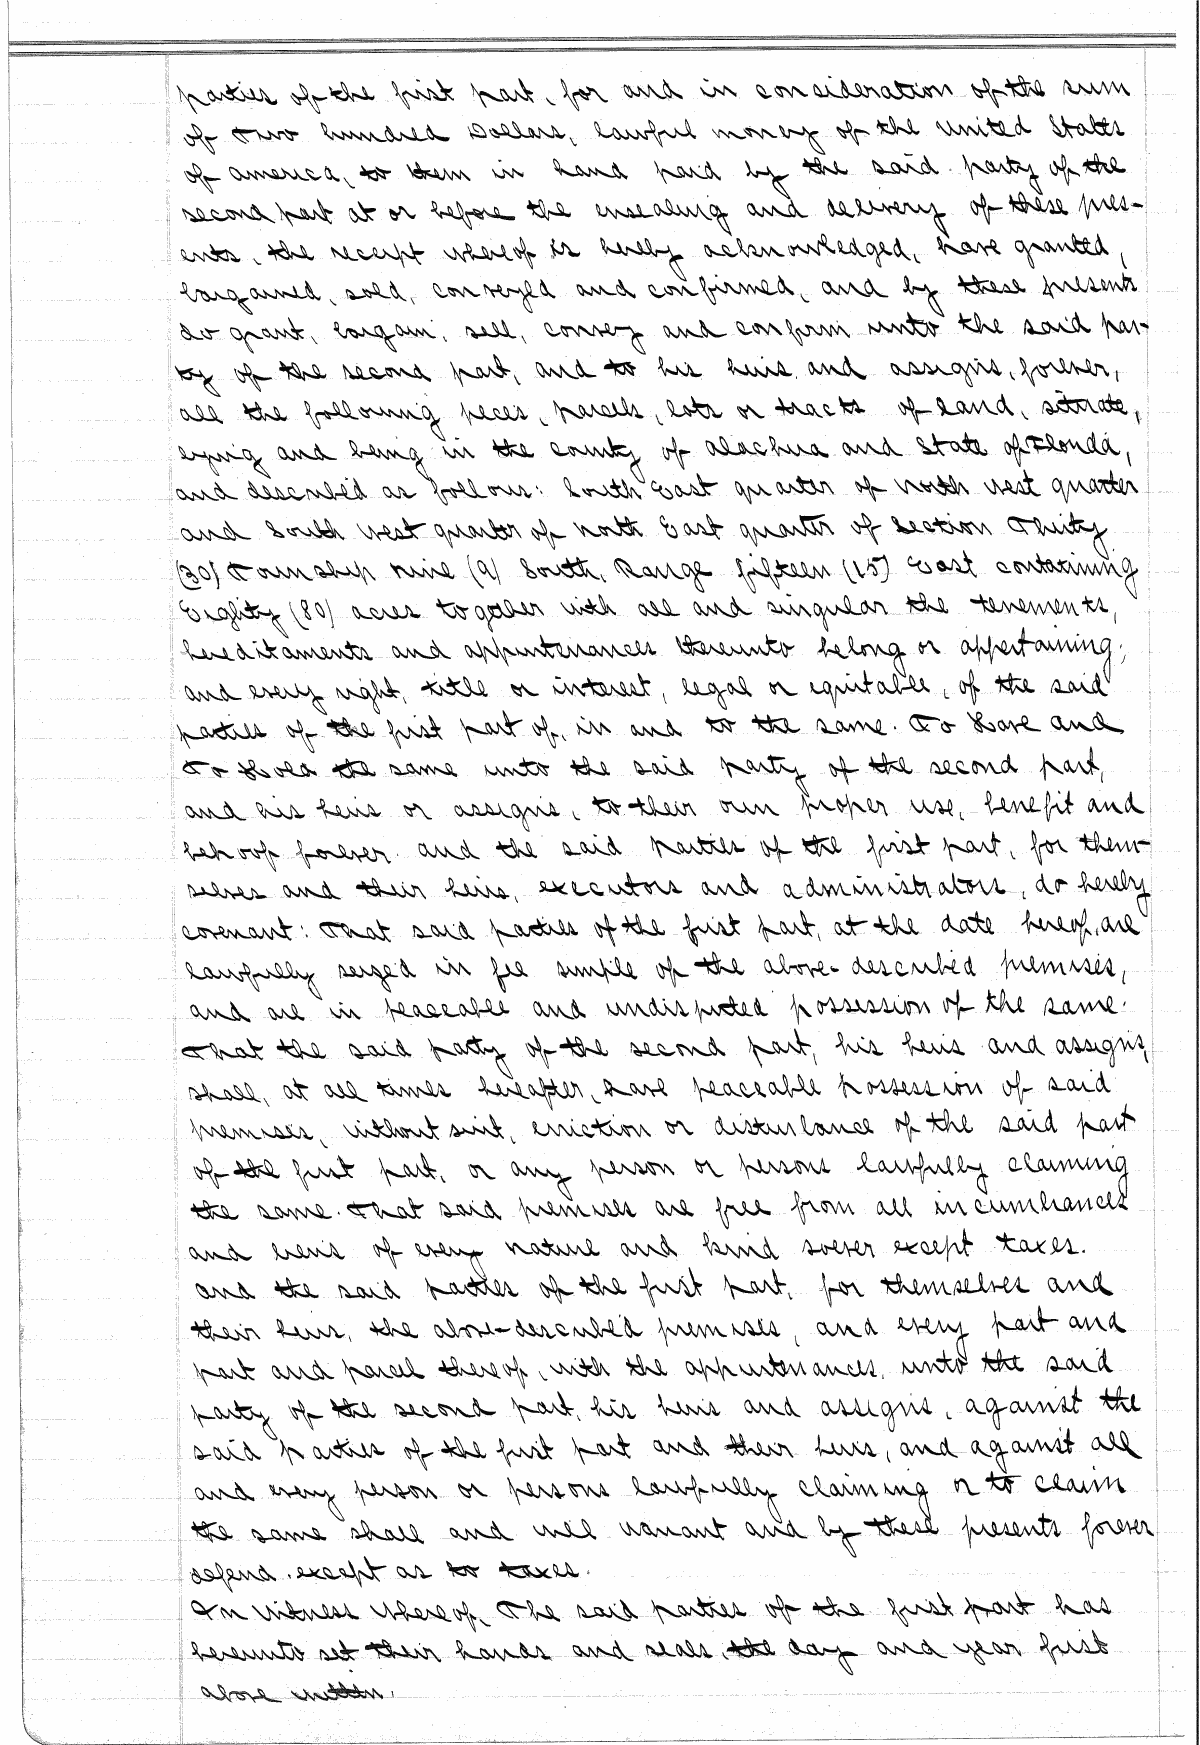 parties of the first part, for and in consideration of the sum
of Two hundred Dollars, lawful money of the United States
of america, to them in hand paid by the said party of the
second part at or before the ensealing and delivery of these pres-
ents, the receipt whereof is hereby acknowledged, have granted,
bargained, sold, conveyed and confirmed, and by these presents
do grant, bargain, sell, convey and confirm unto the said par-
ty of the second part, and to his heirs and assigns, forever,
all the following peces, parcels, lots or tracts of land, situate,
lying and being in the county of alachua and State of Florida,
and described as follows: South East quarter of North West quarter
and South West quarter of North East quarter of Section Thirty
(30) Township nine (9) South, Range fifteen (15) East containing
Eighty (80) acres together with all and singular the tenements,
hereditaments and appurtenances thereunto belong or appertaining;
and every right, title or interest, legal or equitable, of the said
parties of the first part of, in and to the same. To Have and
To Hold the same unto the said party of the second part,
and his heirs or assigns, to their own proper use, benefit and
behoof forever. and the said parties of the first part, for them-
selves and their heirs, executors and administrators, do hereby
covenant: That said parties of the first part, at the date hereof, are
lawfully seized in fee simple of the above-described premises,
and are in peaceable and undisputed possession of the same.
That the said party of the second part, his heirs and assigns,
shall, at all times hereafter, have peaceable possession of said
premises, without suit, eviction or disturbance of the said part
of the first part, or any person or persons lawfully claiming
the same. That said premises are free from all incumbrances
and liens of every nature and kind soever except taxes.
and the said parties of the first part, for themselves and
their heirs, the above-described premises, and every part and
part and parcel thereof, with the appurtenances, unto the said
party of the second part, his heirs and assigns, against the
said parties of the first part and their heirs, and against all
and every person or persons lawfully claiming or to claim
the same shall and will warrant and by these presents forever
defend. except as to taxes.
In Witness Whereof, The said parties of the first part has
hereunto set their hands and seals, the day and year first
above written.